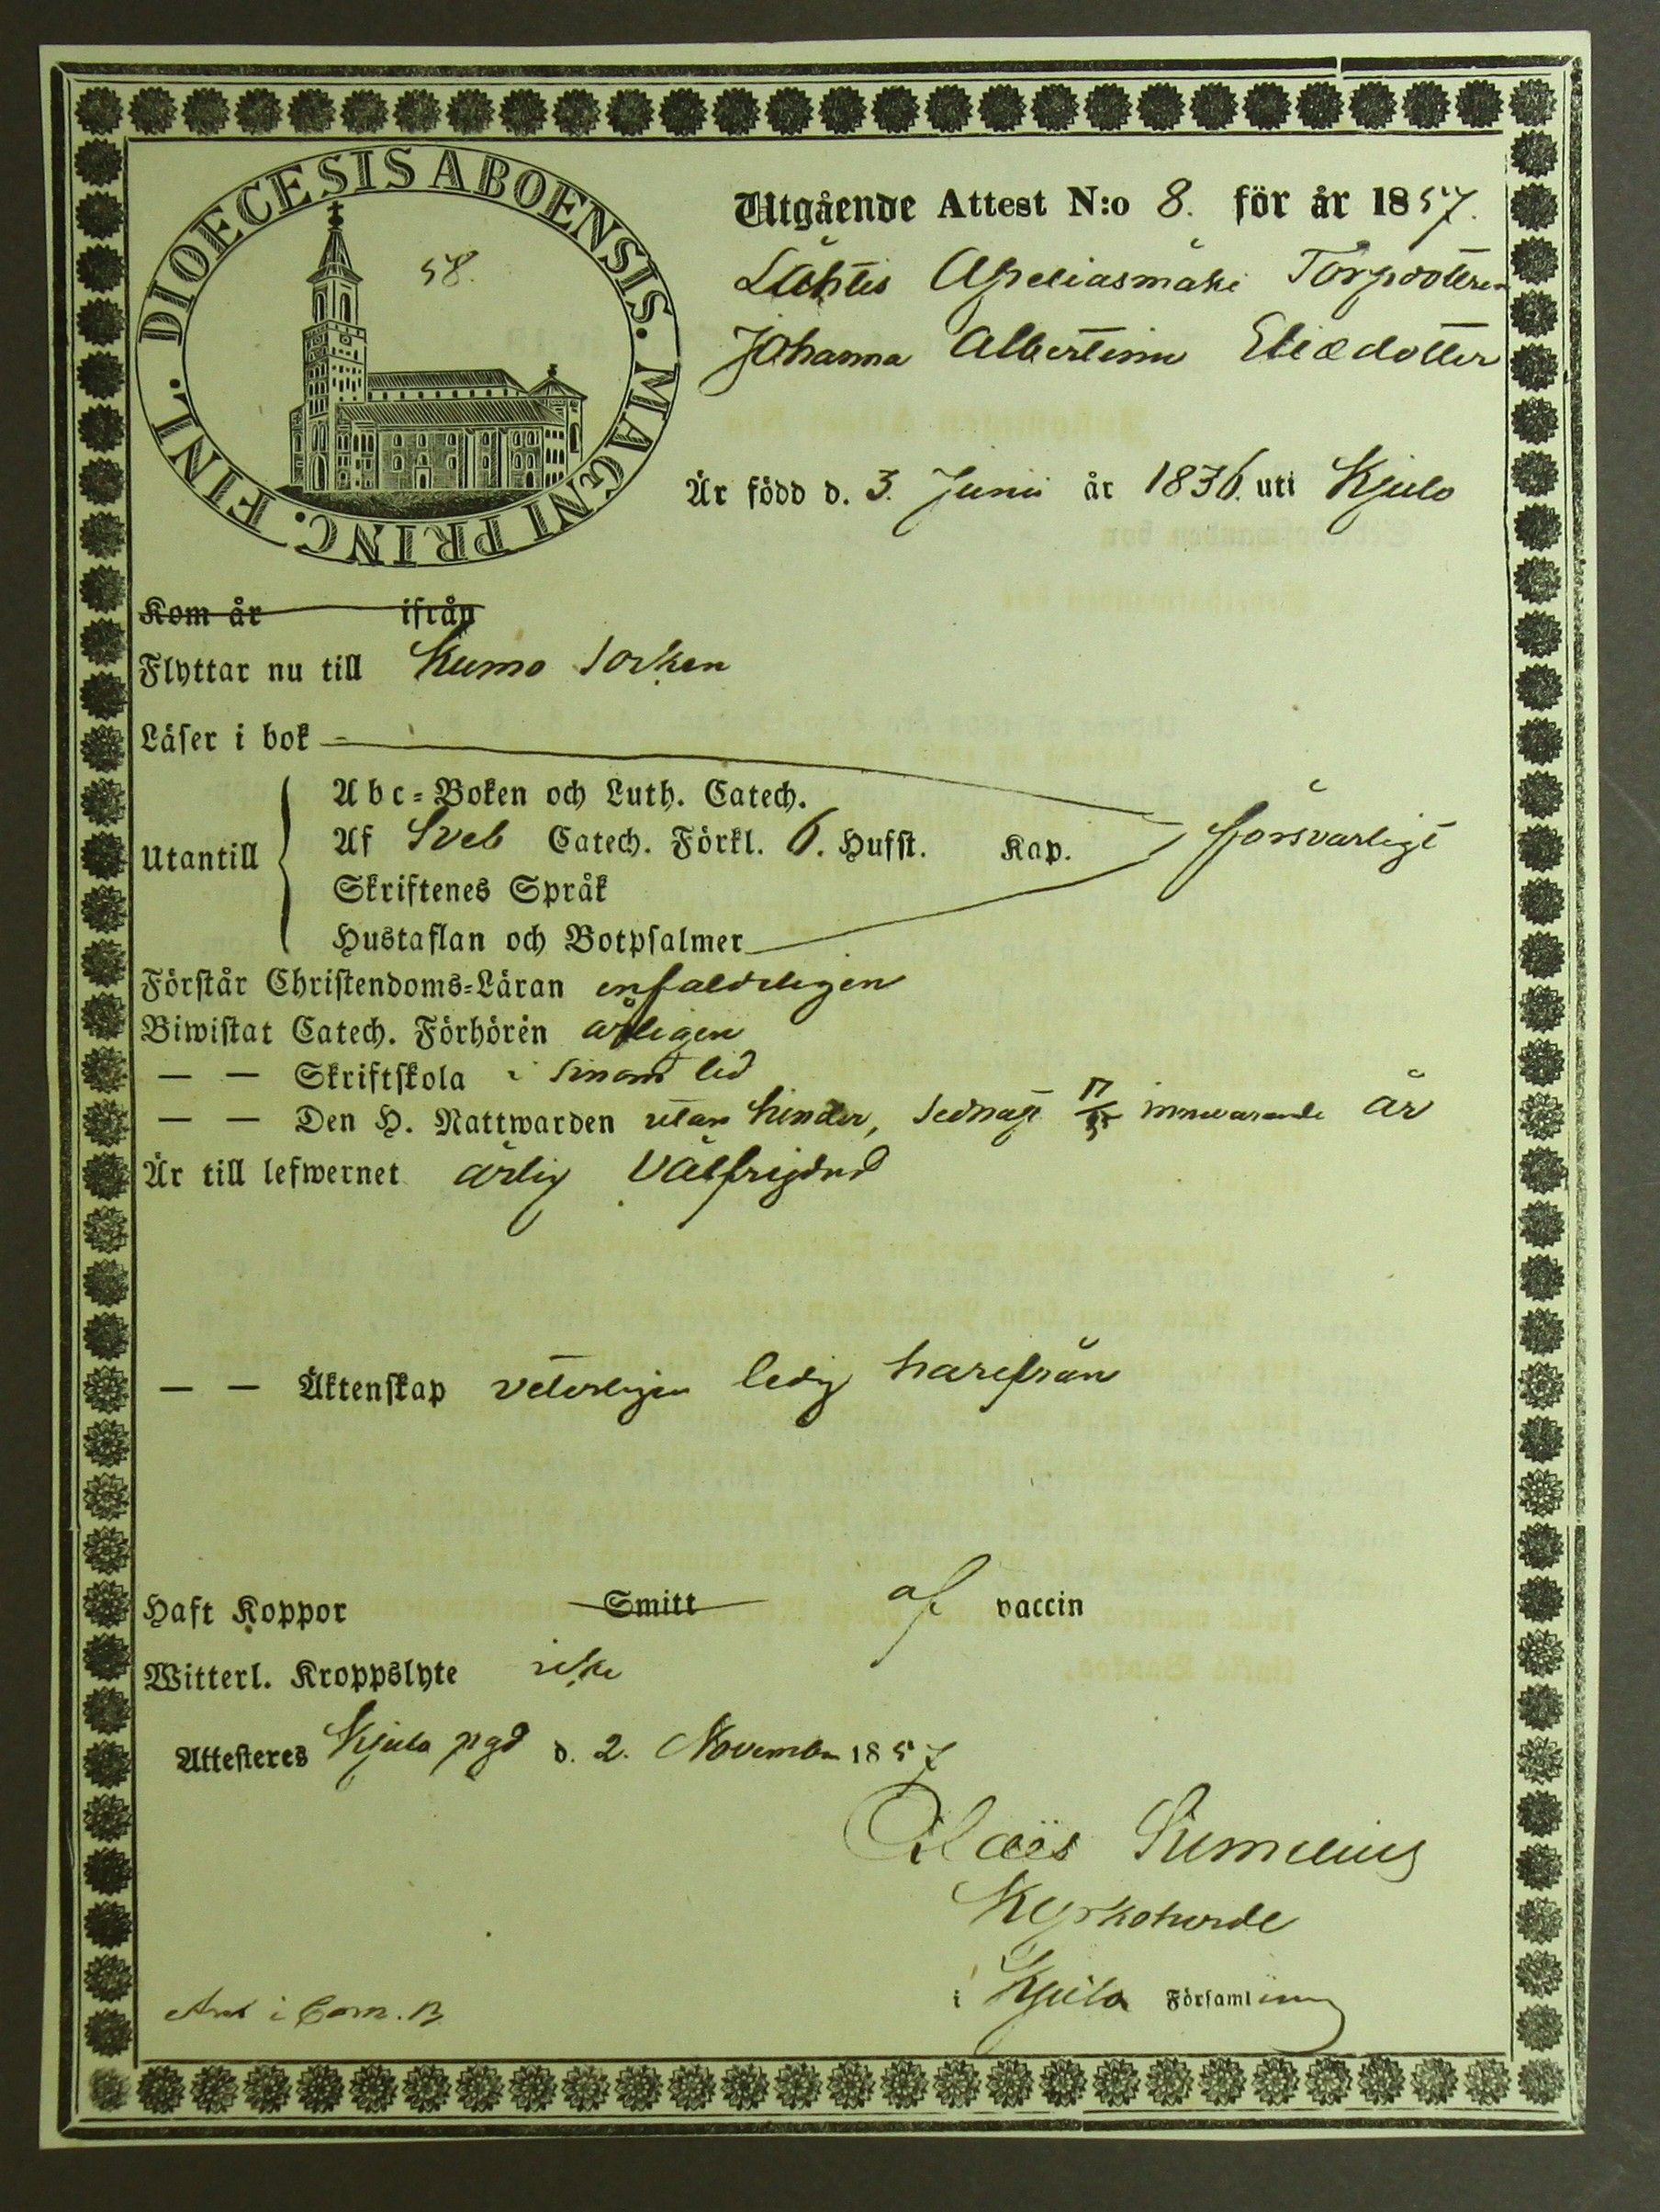 DIOECESIS ABOENSIS. MAGNI PRINC. FINL.
58.
Utgående Attest N:o 8. för år 1857.
Lähtis Torpdottren
Johanna Albertina Eliædotter
Är född d. 3. Junii år 1836. uti Kjulo
Kom år ifrån
Flyttar nu till Kumo Socken
Läser i bok
Utantill
Abc-Boken och Luth. Catech.
Af Sveb Catech. Förkl. 6. Hufst. Kap.
försvarligt
Skriftenes Språk
Hustaflan och Botpsalmer
Förstår Christendoms-Läran enfaldeligen
Biwistat Catech. Förhören årligen
— — Skriftskola i sinom tid
— — Den H. Nattwarden utan hinder, sednast innevarande år
Är till lefwernet ärlig välfrejdad
— — Äktenskap veterligen ledig härifrån
Haft Koppor Smitt af vaccin
Witterl. Kroppslyte icke
Attesteres Kjulo pgd d. 2. November 1857
Claës
Kyrkoherde
i Kjulo Församling